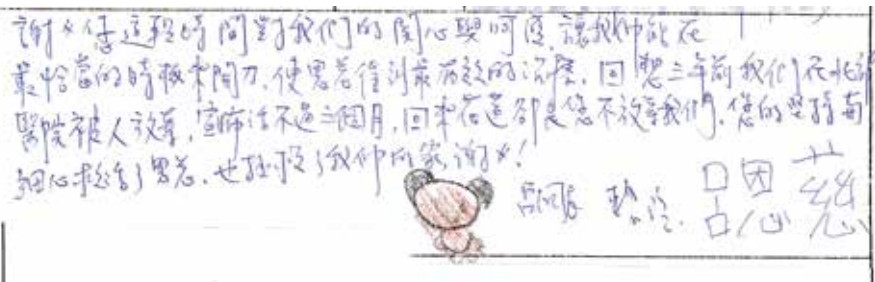 謝々您這段時間對我們的關心與呵護,讓我們能在
最恰當的時機來開刀,使恩慈得到最有效的治療。回想三年前我們在北部
醫院被人放棄,宣佈活不過三個月,回來花蓮卻是您不放棄我們,您的堅持与
細心拯救了恩慈,也拯救了我們的家,謝々!
呂恩慈